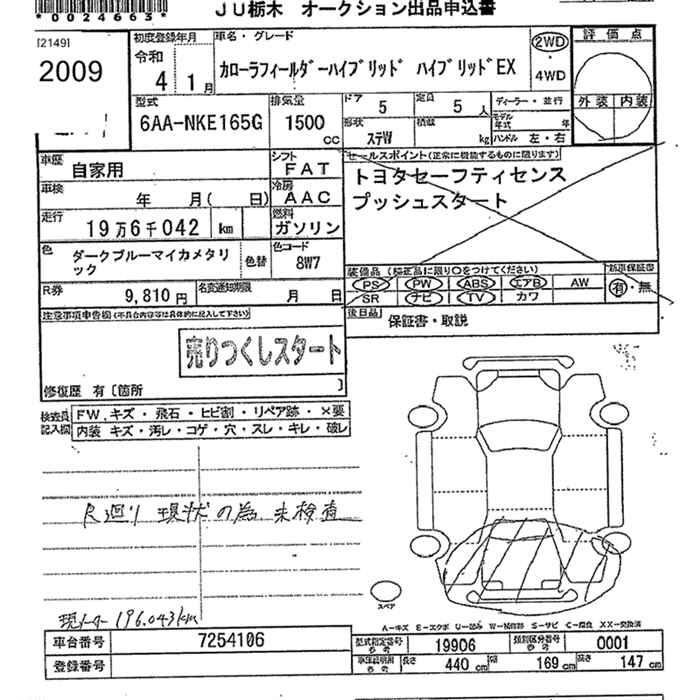 *0024663*
JU栃木 オークション出品申込書
[2149]
2009
初度登録年月
令和
4 1月
車名・グレード
カローラフィールダーハイブリッド ハイブリッドEX
2WD
・
4WD
評価点
外装 内装
型式
6AA-NKE165G
排気量
1500
cc
ドア 5
定員 5 人
形状 ステW
積載 kg
ディーラー・並行
モデル年式 年
ハンドル 左・右
車歴 自家用
シフト FAT
車検 年 月( 日)
冷房 AAC
走行 19万6千042 km
燃料 ガソリン
色 ダークブルーマイカメタリック
色替
色コード 8W7
R券 9,810円
名変通知期限 月 日
セールスポイント(正常に機能するものに限ります)
トヨタセーフティセンス
プッシュスタート
装備品(純正品に限り○をつけてください)
PS PW ABS エアB AW
SR ナビ TV カワ
新車保証書
有・無
後日品 保証書・取説
注意事項申告欄(不具合内容等は具体的に記入して下さい)
売りつくしスタート
修復歴 有〔箇所 〕
検査員記入欄
FW,キズ・飛石・ヒビ割・リペア跡・×要
内装 キズ・汚レ・コゲ・穴・スレ・キレ・破レ
R廻り 現状の為 未検査
現メーター 196,043km
スペア
A−キズ E−エクボ U−凹み W−補修跡 S−サビ C−腐食 XX−交換済
車台番号 7254106
登録番号
型式指定番号 参考 19906
類別区分番号 参考 0001
車庫証明用 参考 長さ 440 cm 幅 169 cm 高さ 147 cm